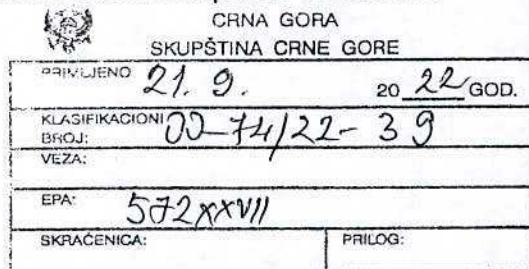 CRNA GORA
SKUPŠTINA CRNE GORE
PRIMLJENO 21. 9. 2022 GOD.
KLASIFIKACIONI BROJ: 00-74/22-39
VEZA:
EPA: 572 XXVII
SKRAĆENICA: PRILOG: